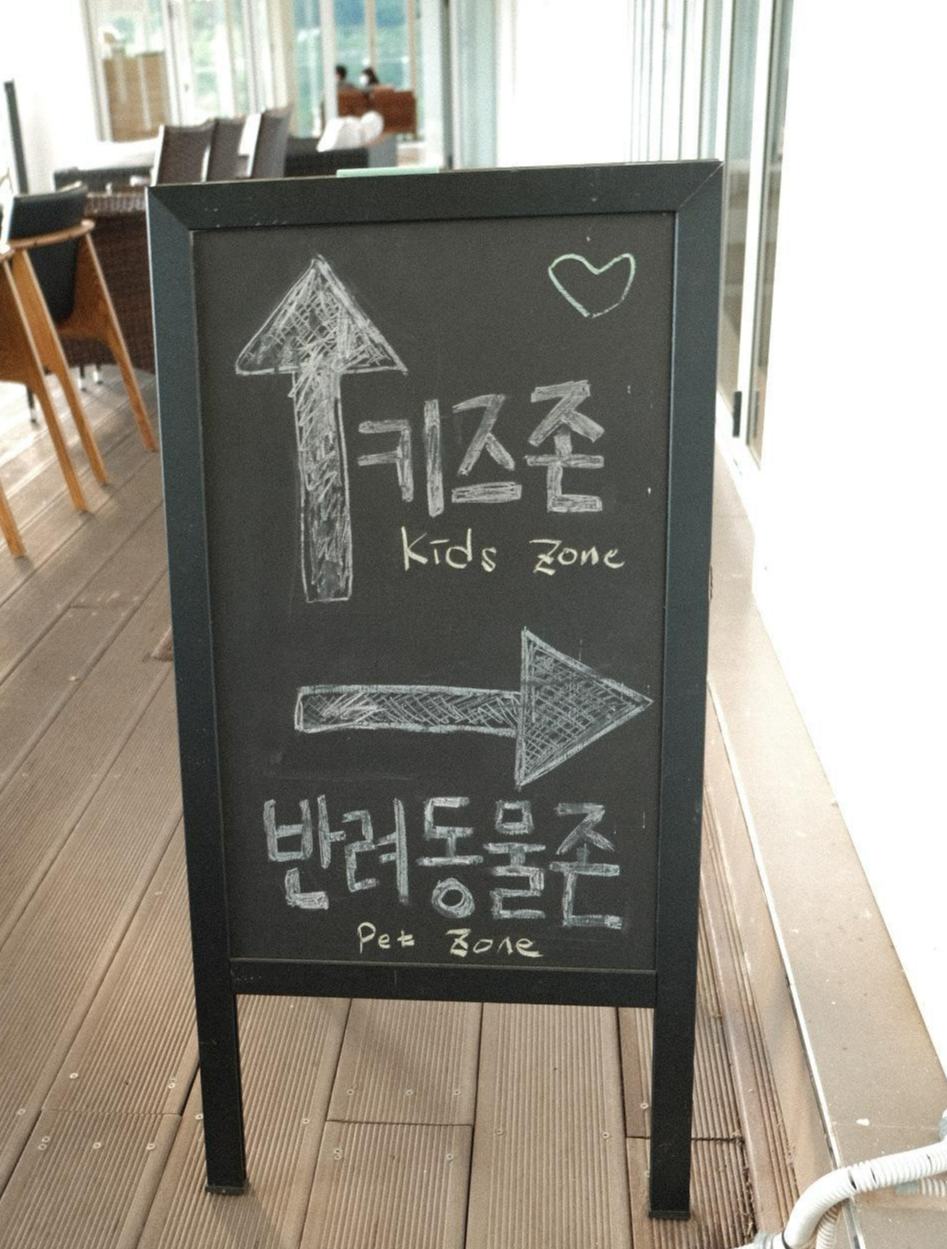 키즈존
Kids Zone
반려동물존
Pet Zone